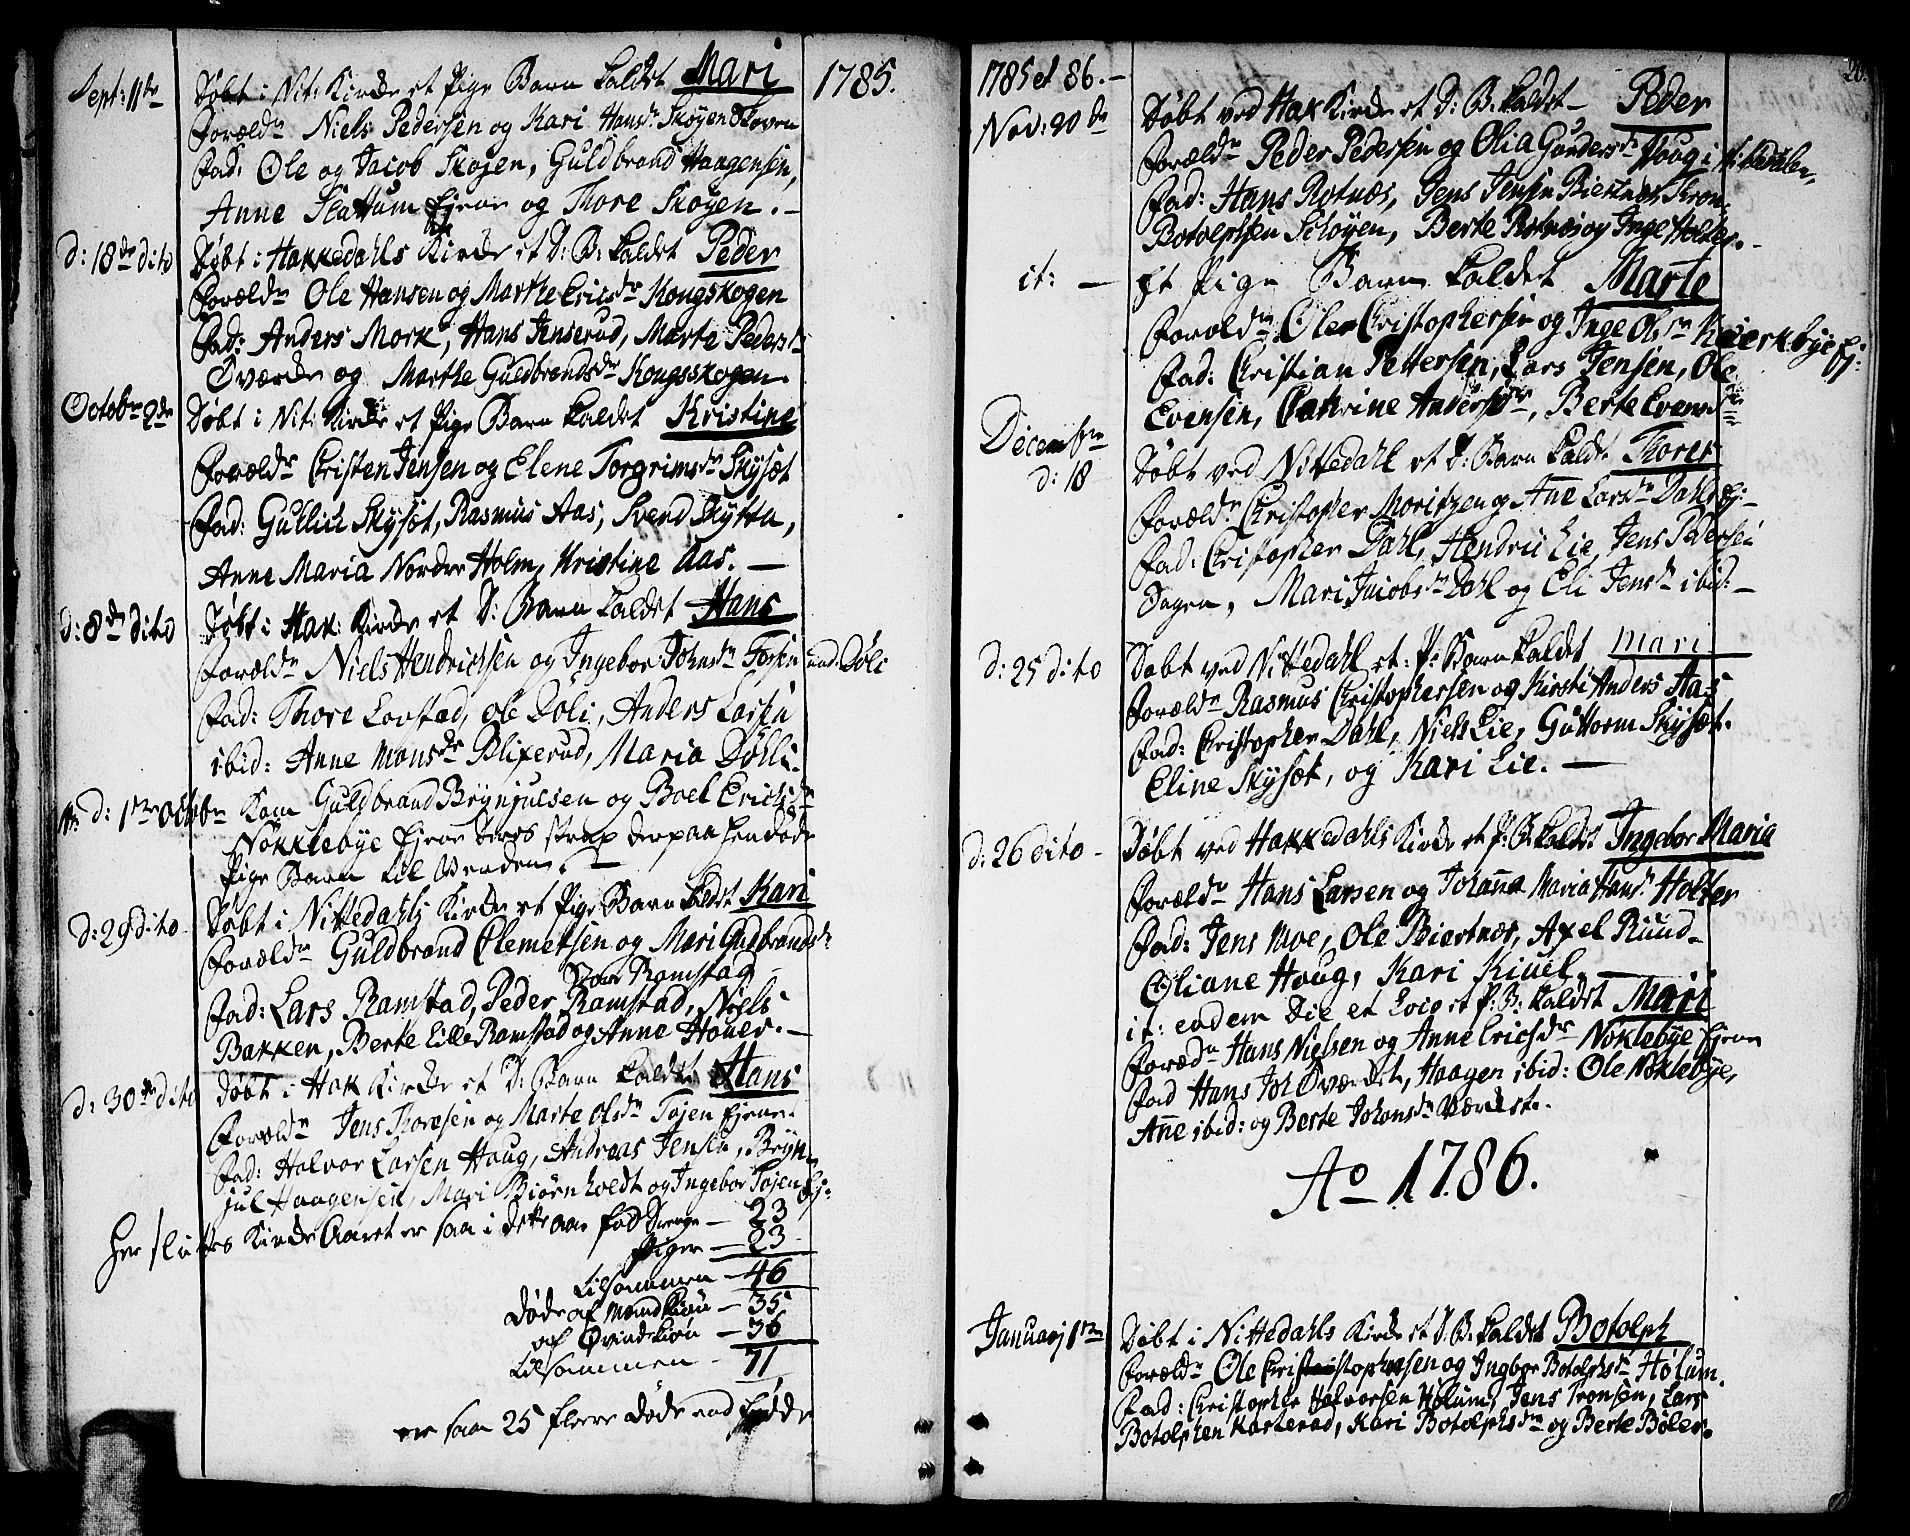 1785.
Sept: 11te Døbt i Nit: Kirke et Pige Barn kaldet Mari
Forældre Niels Pedersen og Kari Hansdr Skøyen Skoven
Fad: Ole og Jacob Skøjen, Guldbrand Haagensen,
Anne Slattum Ejerne og Thore Skøyen.
d: 18de dito Døbt i Hakkedahls Kirke et D: B: kaldet Peder
Forældr Ole Hansen og Marthe Ericsdr Kongskogen
Fad: Anders Mork, Hans Jenserud, Marte Pedersdr
Øværde og Marthe Guldbrandsdr Kongsskogen
Octobr 2de Døbt i Nit: Kirke et Pige Barn kaldet Kristine
Forældr Christen Jensen og Elene Torgrimsdr Skysæt
Fad: Gullich Skysæt, Rasmus Aas, Svend Skytta,
Anne Maria Nordre Holm, Kristine Aas.
d: 8de dito Døbt i Hak: Kirke et D: Barn kaldet Hans
Forældr Niels Hendrichsen og Ingebor Johnsdr Døli
Fad: Thore Lovstad, Ole Døli, Anders Larsen
ibid: Anne Monsdr Blixerud, Maria Dølli.
d: 1ste Octobr Kom Guldbrand Brynjulsen og Boel Erichsdr
Nøkklebye Ejerne deres
Pige Barn til Verden.
d: 29 dito Døbt i Nittedahls Kirke et Pige Barn kaldet Kari
Forældr Guldbrand Clemetsen og Mari Guldbrandsdr
Store Ramstad
Fad: Lars Ramstad, Peder Ramstad, Niels
Bakken, Berte Lille Ramstad og Anne Høuer.
d: 30de dito Døbt i Hak Kirke et D: Barn kaldet Hans
Forældr Jens Thoresen og Marte Olsdr Tøjen Ejerne.
Fad: Halvor Larsen Houg, Andreas Jensen, Bryn-
jul Haagensen, Mari Biørnholdt og Ingebor Tøjen Ej:
Her sluttes Kirke Aaret er saa i dette aar fød Drenge – 23
Piger – 23
Tilsammen – 46
Døde af Mandkiøn – 35
af Qvindekiøn – 36
Tilsammen – 71
er saa 25 flere døde end fødde
1785 et 86. –
20.
Nov: 20de Døbt ved Hak Kirke et D: B: kaldet Peder
Forældr Peder Pedersen og Olia Gundersdr Houg i
Fad: Hans Rotnæs, Jens Jensen Biertnæs, Tron
Botolphsen Schøyen, Berte Rotnæs og Inge Holter.
it: – Et Pige Barn kaldet Marte
Forældr Ole Christophersen og Inge Olsdr Kierkebye Ej:
Fad: Christian Pettersen, Lars Jensen, Ole
Evensen, Cathrine Andersdr, Berte Evensdr
Decembr d: 18 Døbt ved Nittedahl et D: Barn kaldt Thorer
Forældr Christopher Moritzen og Ane Larsdr Dahl Ej:
Fad: Christopher Dahl, Hendric Lie, Jens Pedersen
Mari Jacobsdr Dahl og Eli Jensdr ibid:
d: 25 dito Døbt ved Nittedahl et: P: Barn kaldet Mari
Forældr Rasmus Christophersen og Kirsti Anders Aas
Fad: Christopher Dahl, Niels Lie, Guttorm Skysæt.
Eline Skysæt, og Kari Lie.
d: 26 dito – Døbt ved Hakkedahls Kirke et P: B: kaldet Ingebor Maria
Forældr Hans Larsen og Johanna Maria Hansdr Holter
Fad: Jens Moe, Ole Biertnæs, Axel Ruud
Oliane Houg, Kari Kiuel.
it: eodem Die et Loco et P: B: kaldet Mari
Forældr Hans Nielsen og Anne Ericsdr Nøklebye Ejerne
Fad Hans Joh Øværdet, Haagen ibid: Ole Nøklebye,
Anne ibid: og Berte Johansdr Værdet.
Ao 1786.
Januarj 1ste Døbt i Nittedahls Kirke et D: B: kaldet Botolph
Forældr Ole Christophersen og Ingbor Botolphsdr Hølum.
Fad: Christopher Halvorsen Hølum, Jens Tronsen, Lars
Botolphsen Karterud, Kari Botolphsdr og Berte Bøler.